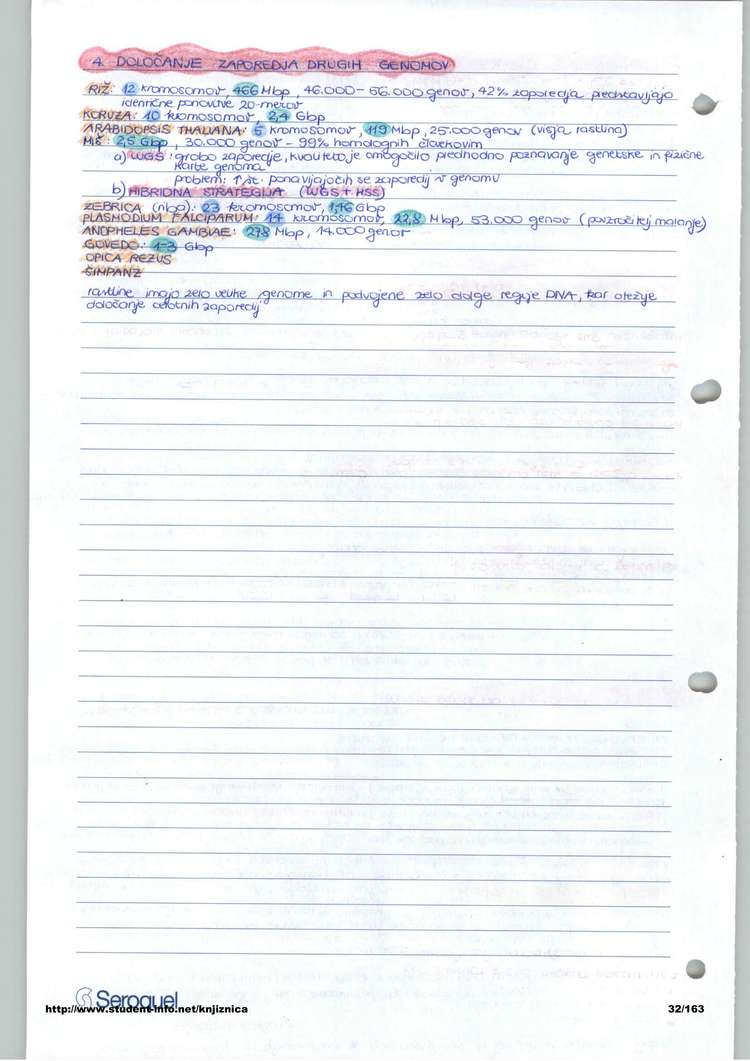 4. DOLOČANJE ZAPOREDJA DRUGIH GENOMOV
RIŽ: 12 kromosomov, 466 Mbp, 46.000 - 56.000 genov, 42% zaporedja predstavljajo
identične ponovitve 20-merov
KORUZA: 10 kromosomov, 2,4 Gbp
ARABIDOPSIS THALIANA: 5 kromosomov, 119 Mbp, 25.000 genov (višja rastlina)
MIŠ: 2,5 Gbp, 30.000 genov - 99% homolognih človekovim
a) WGS: grobo zaporedje, kvaliteto je omogočilo predhodno poznavanje genetske in fizične
karte genoma
problem: ↑ št. ponavljajočih se zaporedij v genomu
b) HIBRIDNA STRATEGIJA (WGS + HSS)
ZEBRICA (riba): 23 kromosomov, 1,16 Gbp
PLASMODIUM FALCIPARUM: 14 kromosomov, 22,8 Mbp, 53.000 genov (povzročitelj malarije)
ANOPHELES GAMBIAE: 278 Mbp, 14.000 genov
GOVEDO: 1-3 Gbp
OPICA REZUS
ŠIMPANZ
rastline imajo zelo velike genome in podvojene zelo dolge regije DNA, kar otežuje
določanje celotnih zaporedij
Seroquel
http://www.student-info.net/knjiznica 32/163